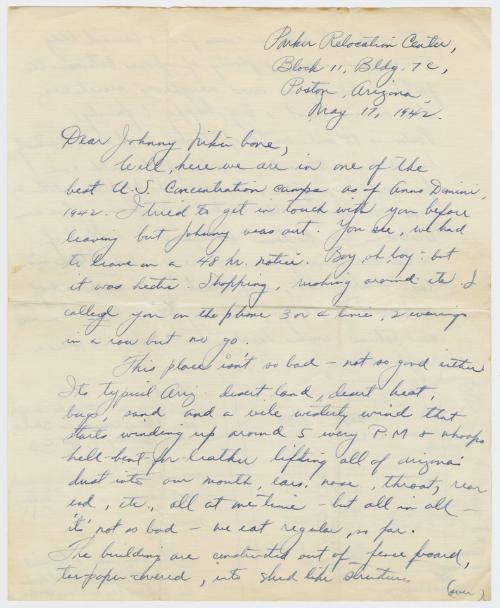 Parker Relocation Center,
Block 11, Bldg. 7C,
Poston, Arizona,
May 17, 1942.
Dear Johnny bone,
Well, here we are in one of the
best U.S. Concentration camps as of Anno Domini,
1942. I tried to get in touch with you before
leaving but Johnny was out. You see, we had
to leave on a 48 hr. notice. Boy, oh, boy - but
it was hectic. Shopping, rushing around etc. I
called you on the phone 3 or 4 times, 2 evenings
in a row but no go.
This place isn't so bad - not so good either
Its typical Ariz. desert land, desert heat,
bugs, sand and a vile westerly wind that
starts winding up around 5 every P.M & whoops
hell-bent-for-leather lifting all of Arizona's
dust into our mouth, ears, nose, throat, rear
end, etc., all at one time - but all in all -
it's not so bad - we eat regular, so far.
The building are constructed out of fence board,
tarpaper-covered, into shed like structures
(over)